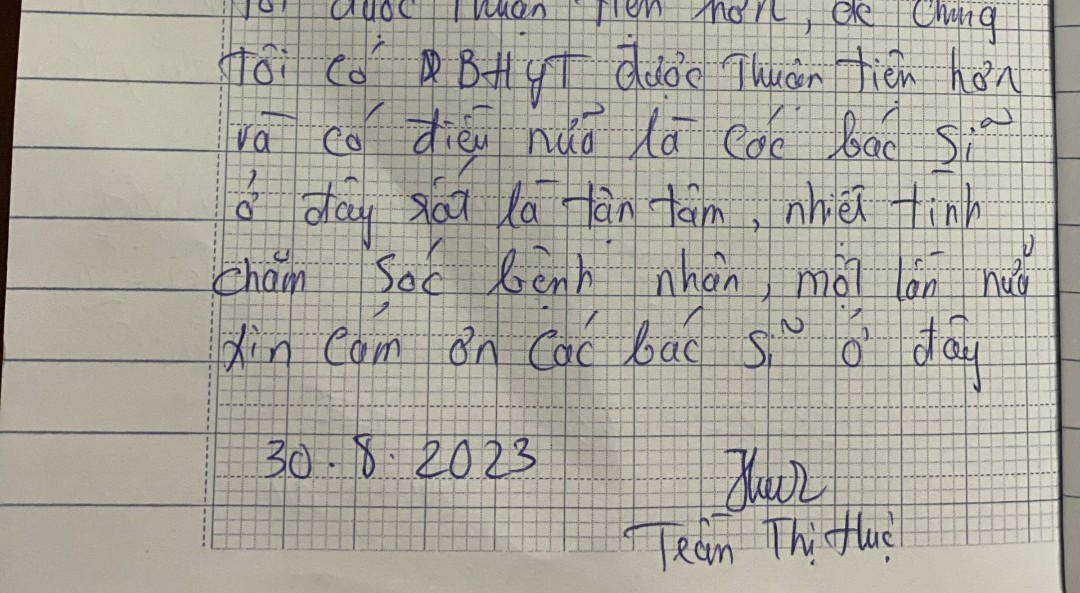 tôi được thuận tiện hơn, để chúng
tôi có BHYT được thuận tiện hơn
và có điều nữa là các bác sĩ
ở đây rất là tận tâm, nhiệt tình
chăm sóc bệnh nhân, một lần nữa
xin cảm ơn các bác sĩ ở đây
30.8.2023
Trần Thị Huệ